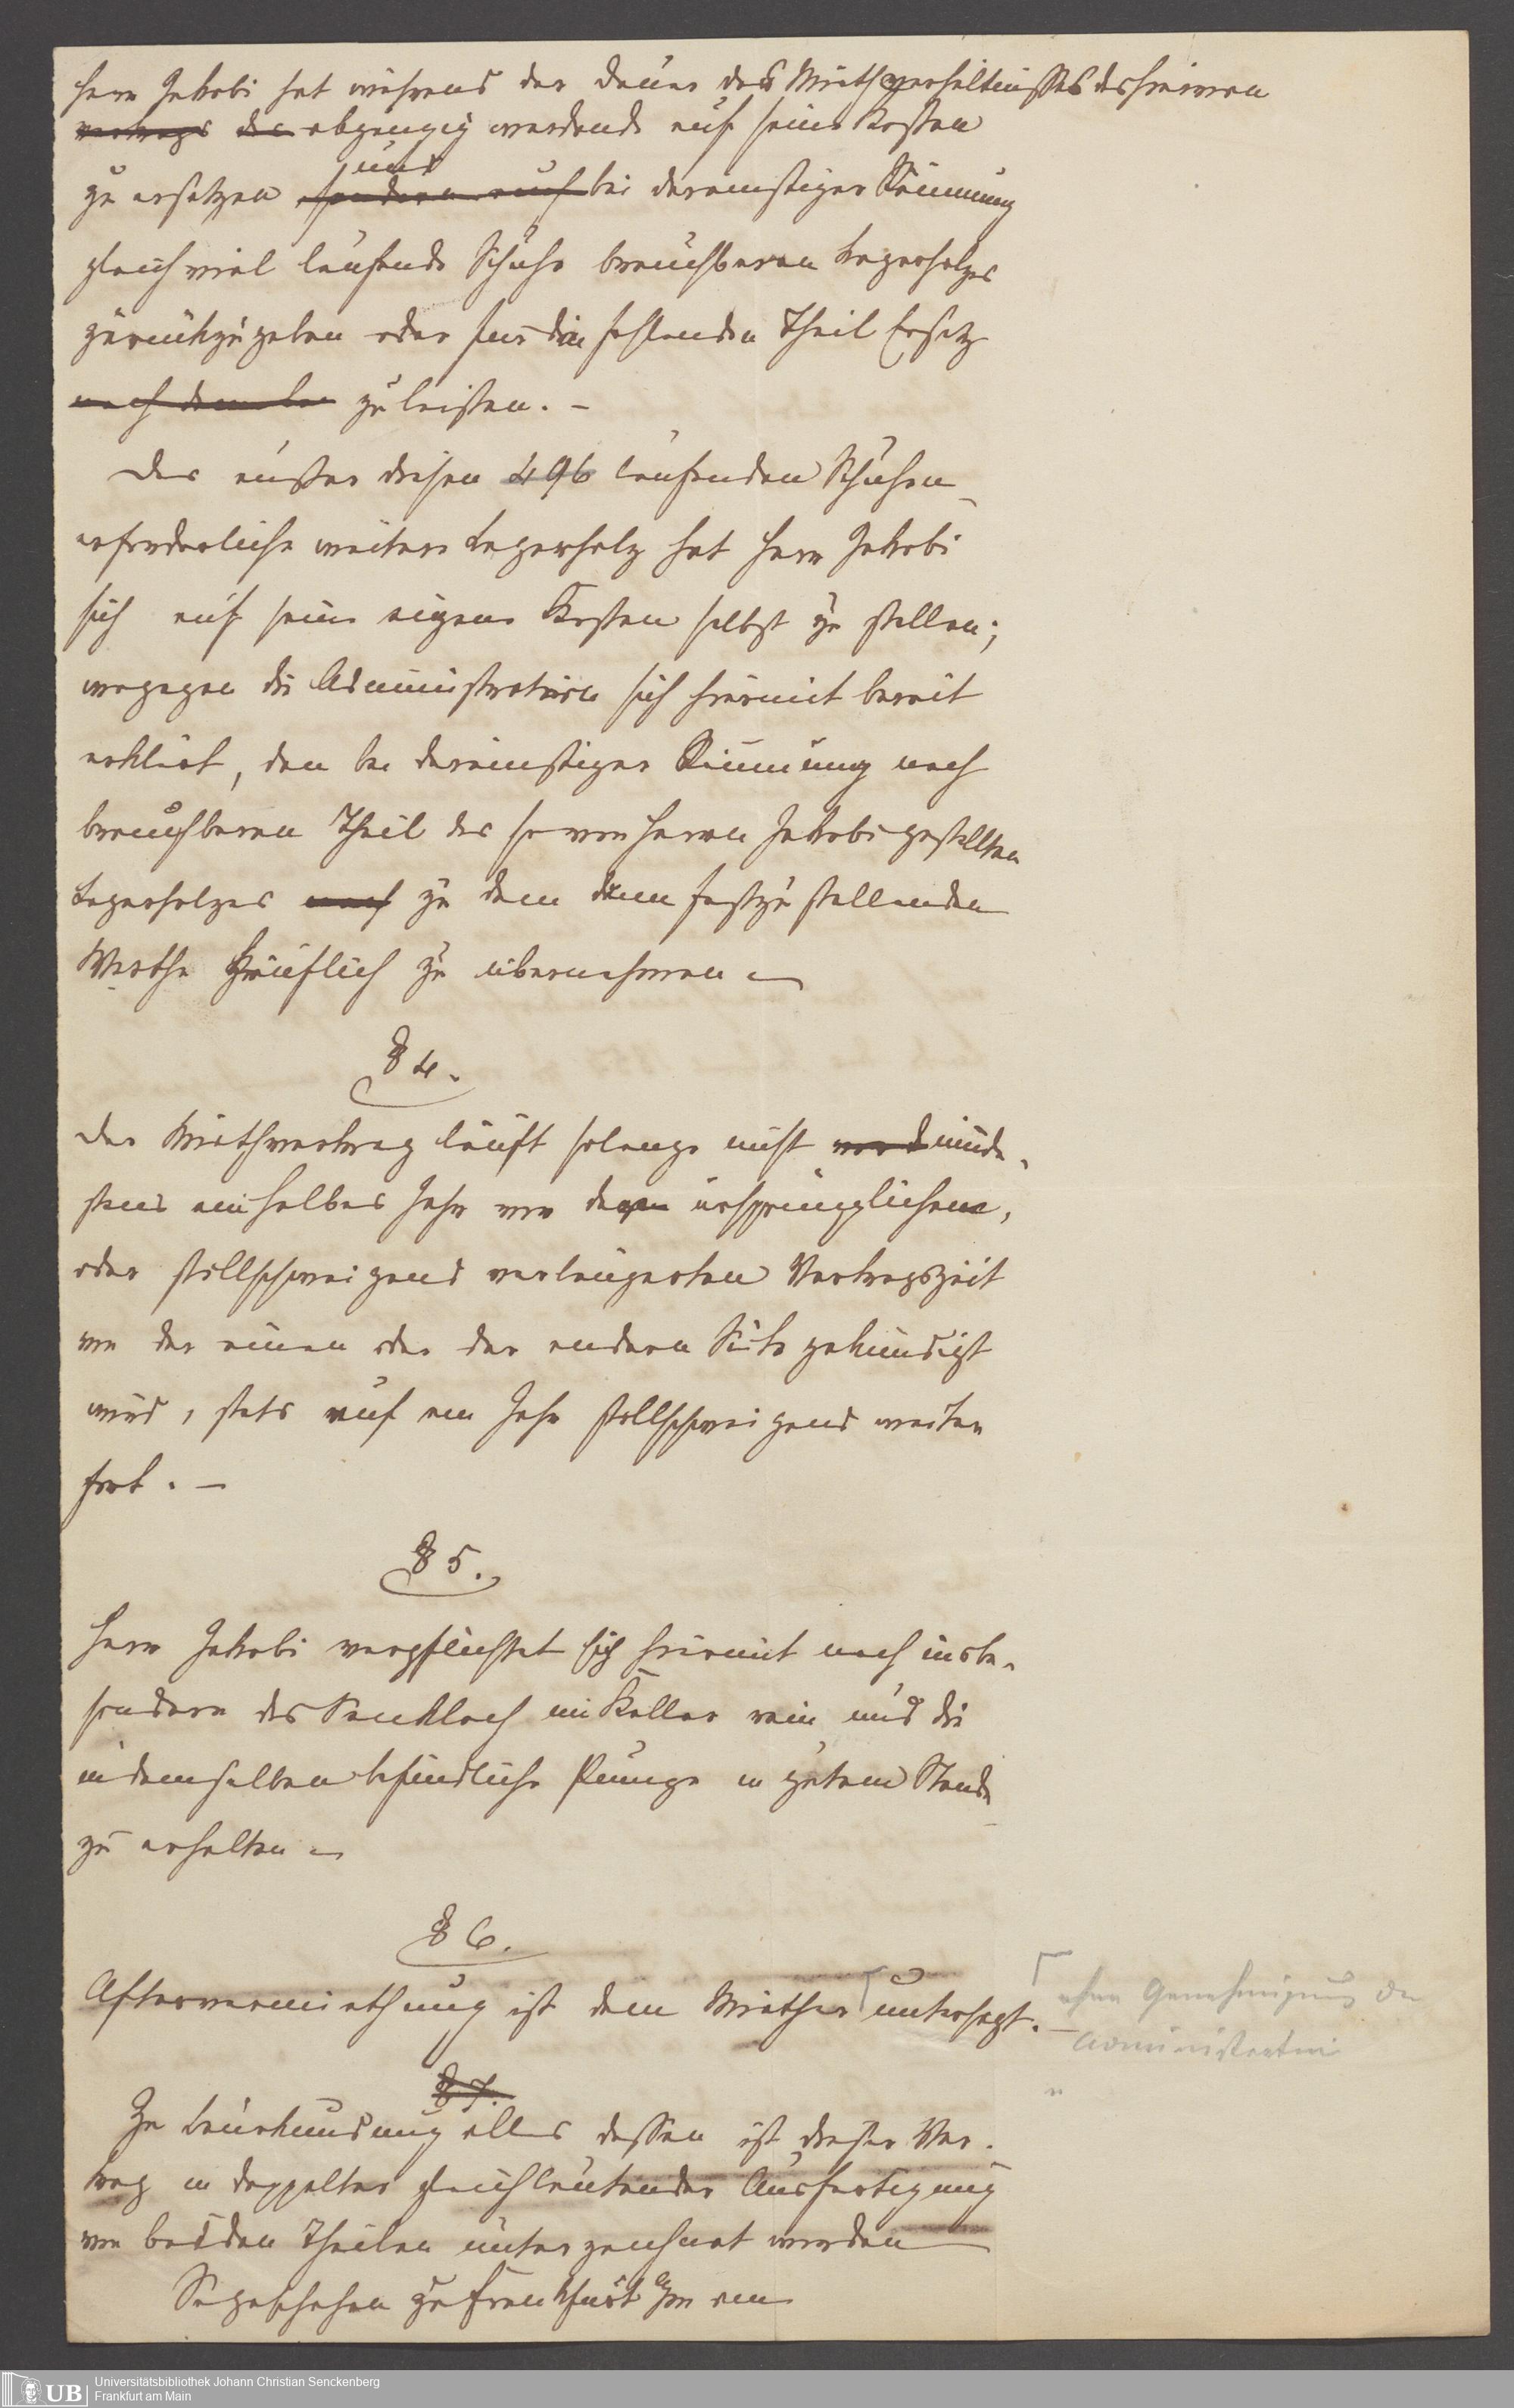 Herr Jakobi hat während der Dauer des Miethverhältnisses das hiervon
vertrags das abgängig werdende auf seine Kosten
und
zu ersetzen sondern auch bei dereinstiger Räumung
gleich viel laufende Schuhe brauchbaren Lagerholzes
zurückzugeben oder für den fehlenden Theil Ersatz
nach dem zu leisten. –
Das außer diesen 496 laufenden Schuhen
erforderliche weitere Lagerholz hat Herr Jakobi
sich auf seine eigene Kosten selbst zu stellen;
wogegen die Administration sich hiermit bereit
erklärt, den bei dereinstiger Räumung noch
brauchbaren Theil des so von Herrn Jakobi gestellten
Lagerholzes nach zu dem dann festzustellenden
Werthe käuflich zu übernehmen. –
§ 4.
Der Miethvertrag läuft solange nicht minde-
stens ein halbes Jahr vor der ursprünglichen,
oder stillschweigend verlängerten Vertragszeit
von der einen oder der andern Seite gekündigt
wird, stets auf ein Jahr stillschweigend weiter
fort. –
§ 5.
Herr Jakobi verpflichtet sich hiermit noch insbe-
sondere das Senkloch im Keller rein und die
in demselben befindliche Pumpe in gutem Stande
zu erhalten. –
§ 6.
Aftervermiethung ist dem Miether ⌈ untersagt. –
⌈ ohne Genehmigung der
Administration
§ 7.
Zu Beurkundung alles dessen ist dieser Ver-
trag in doppelter gleichlautender Ausfertigung
von beiden Theilen unterzeichnet worden
So geschehen zu Frankfurt a/m am
UB Universitätsbibliothek Johann Christian Senckenberg
Frankfurt am Main